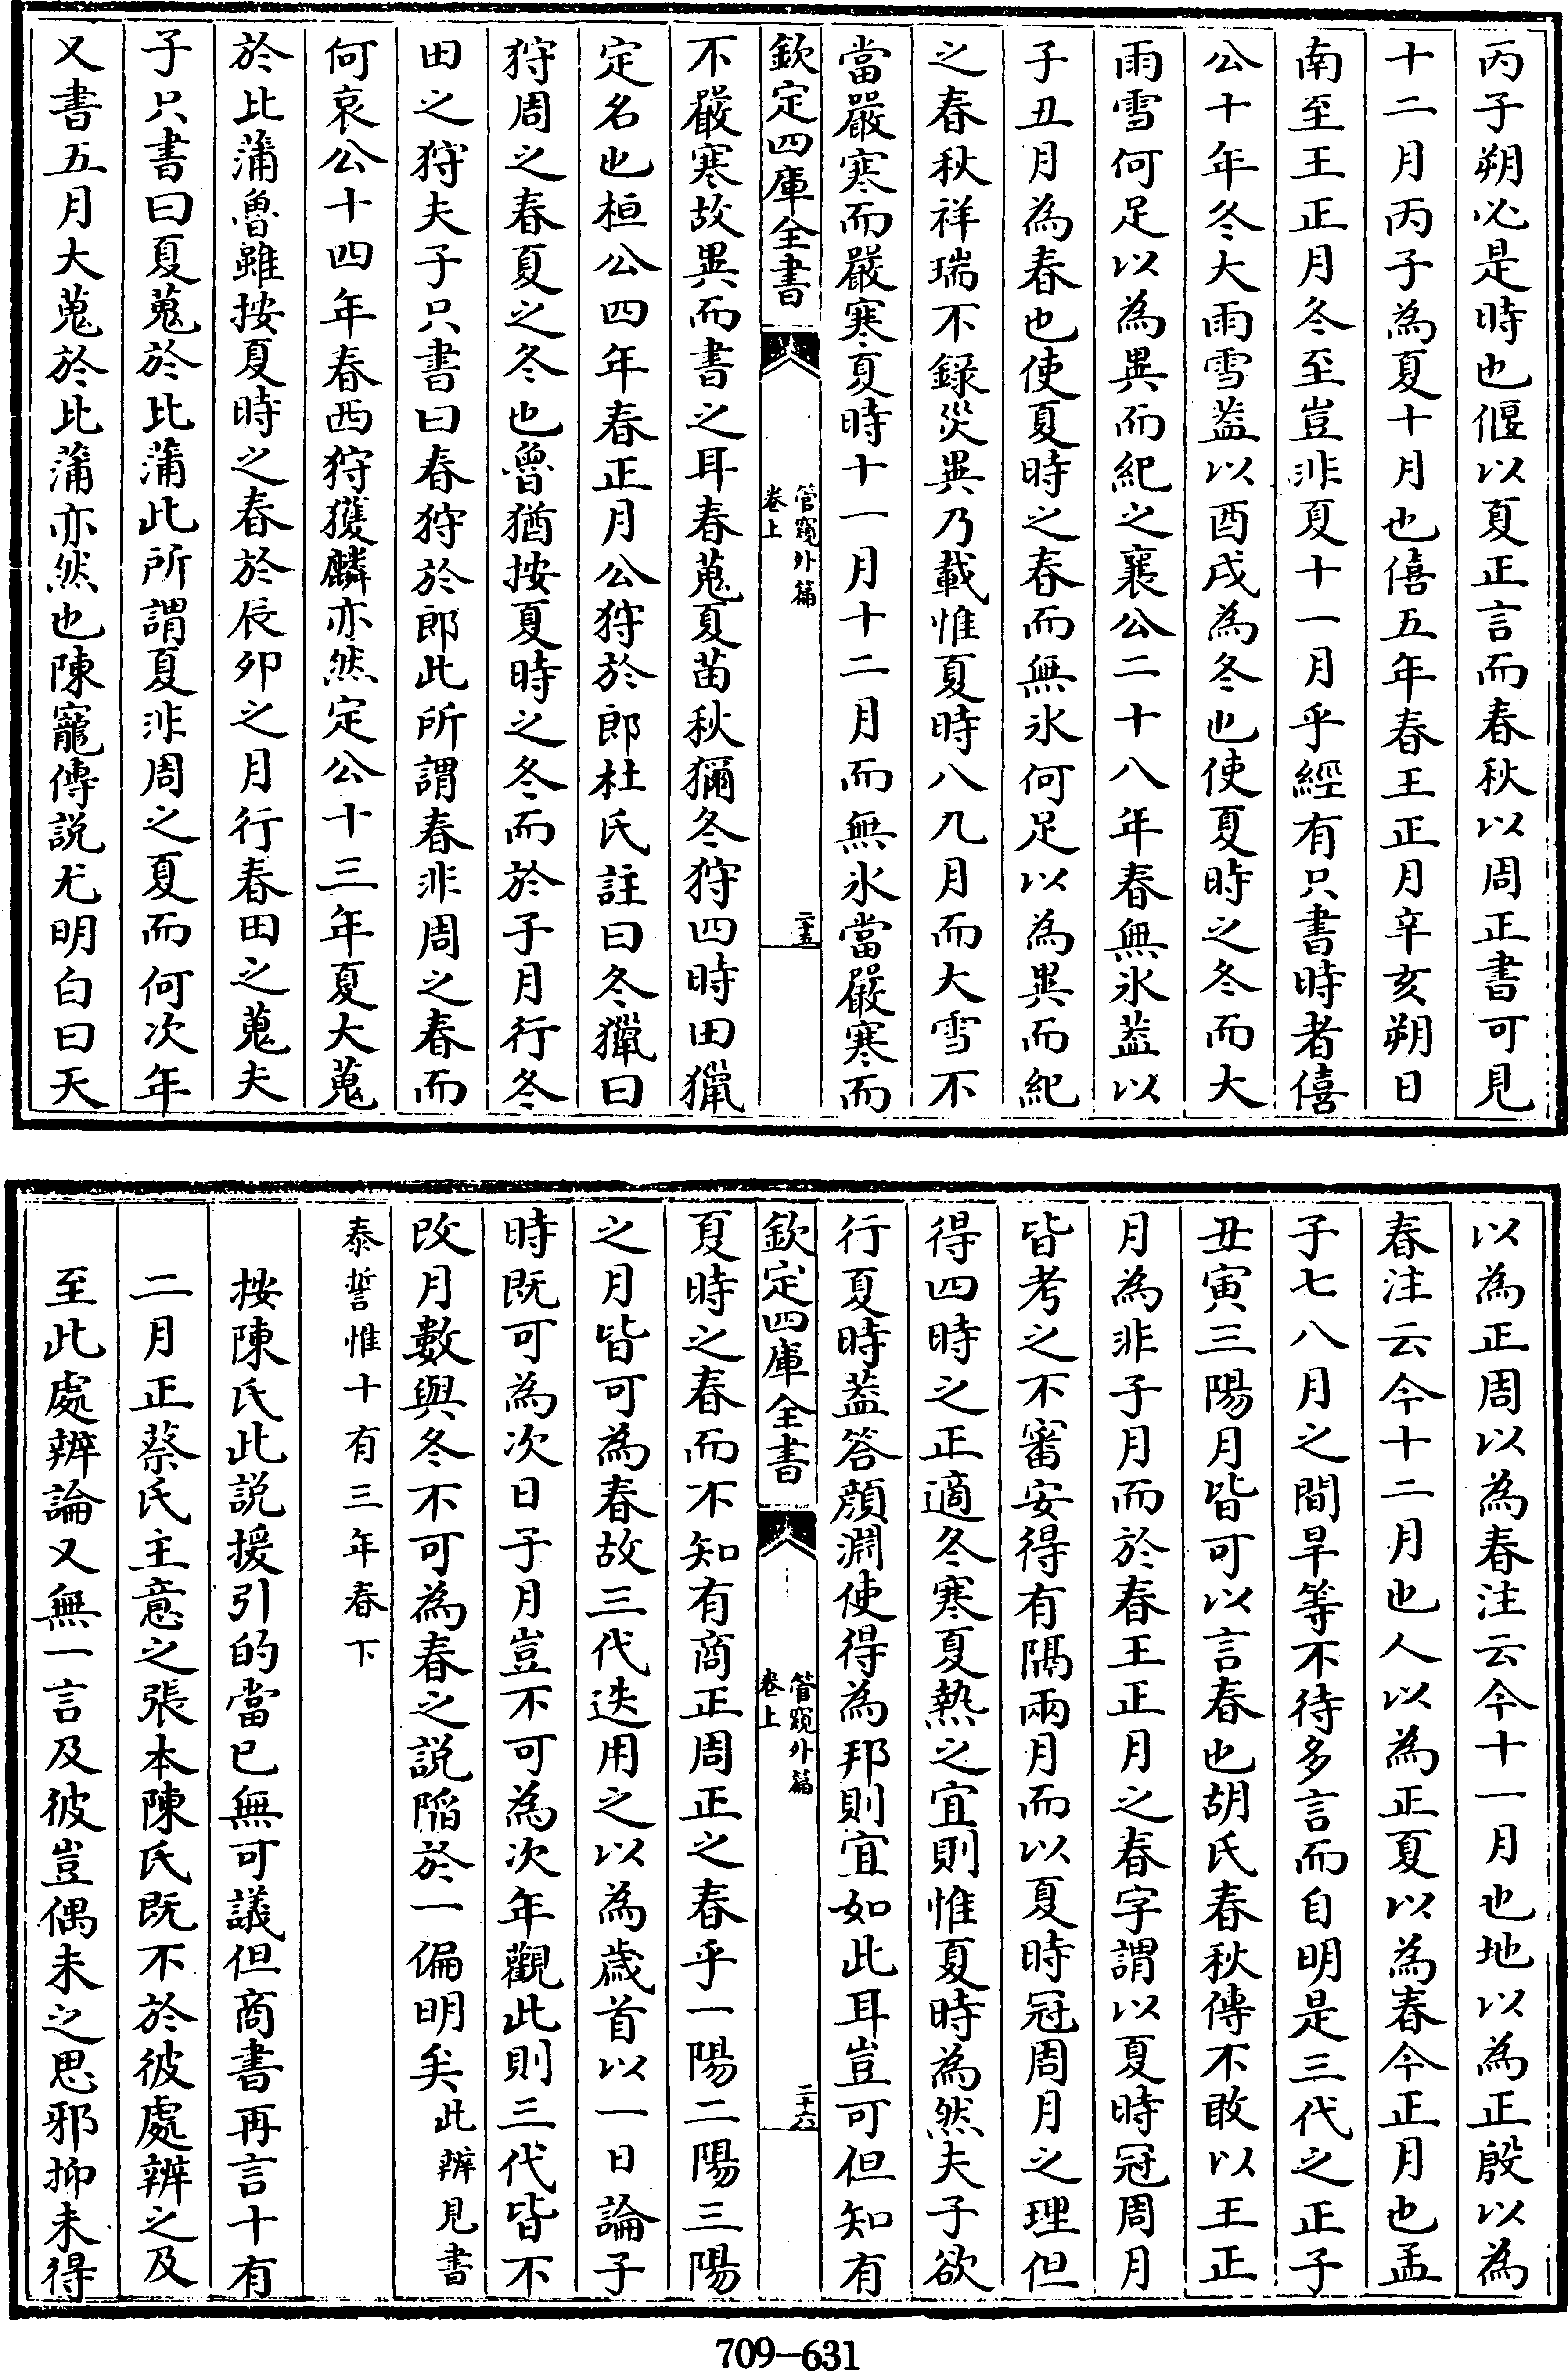 丙子朔必是時也偃以夏正言而春秋以周正書可見
十二月丙子為夏十月也僖五年春王正月辛亥朔日
南至王正月冬至豈非夏十一月乎經有只書時者僖
公十年冬大雨雪葢以酉戌為冬也使夏時之冬而大
雨雪何足以為異而紀之襄公二十八年春無氷葢以
子丑月為春也使夏時之春而無氷何足以為異而紀
之春秋祥瑞不錄災異乃載惟夏時八九月而大雪不
當嚴寒而嚴寒夏時十一月十二月而無氷當嚴寒而
欽定四庫全書
管窺外篇
卷上
二十五
不嚴寒故異而書之耳春蒐夏苗秋獮冬狩四時田獵
定名也桓公四年春正月公狩於郎杜氏註曰冬獵曰
狩周之春夏之冬也魯猶按夏時之冬而於子月行冬
田之狩夫子只書曰春狩於郎此所謂春非周之春而
何哀公十四年春西狩獲麟亦然定公十三年夏大蒐
於比蒲魯雖按夏時之春於辰卯之月行春田之蒐夫
子只書曰夏蒐於比蒲此所謂夏非周之夏而何次年
又書五月大蒐於比蒲亦然也陳寵傳說尤明白曰天
以為正周以為春注云今十一月也地以為正殷以為
春注云今十二月也人以為正夏以為春今正月也孟
子七八月之間旱等不待多言而自明是三代之正子
丑寅三陽月皆可以言春也胡氏春秋傳不敢以王正
月為非子月而於春王正月之春字謂以夏時冠周月
皆考之不審安得有隔兩月而以夏時冠周月之理但
得四時之正適冬寒夏熱之宜則惟夏時為然夫子欲
行夏時葢答顔淵使得為邦則宜如此耳豈可但知有
欽定四庫全書
管窺外篇
卷上
二十六
夏時之春而不知有商正周正之春乎一陽二陽三陽
之月皆可為春故三代迭用之以為歳首以一日論子
時既可為次日子月豈不可為次年觀此則三代皆不
改月數與冬不可為春之說陷於一偏明矣此辨見書
泰誓惟十有三年春下
按陳氏此說援引的當已無可議但商書再言十有
二月正蔡氏主意之張本陳氏既不於彼處辨之及
至此處辨論又無一言及彼豈偶未之思邪抑未得
709-631